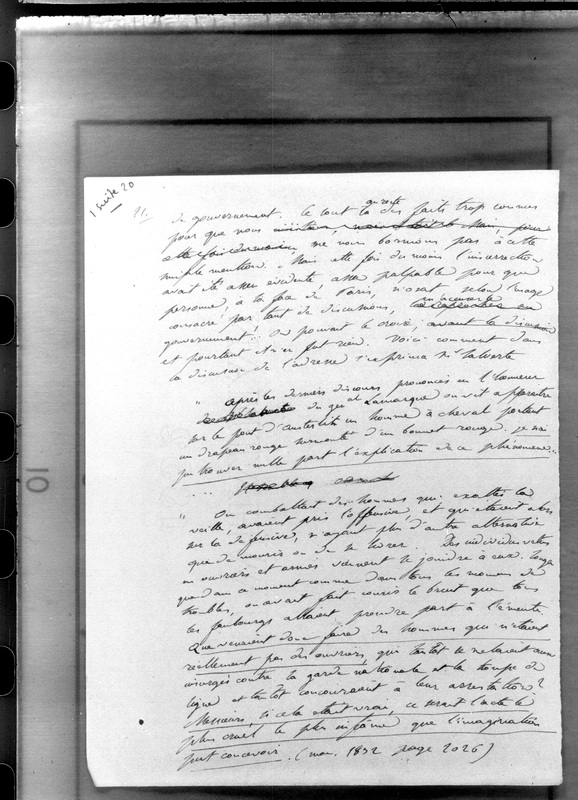 1 suite 20
11.
de gouvernement. Ce tout là des faits trop connus
pour que nous ne nous bornions pas à cette
simple mention. Mais cette fois du moins l'insurrection
avait été assez évidente, assez palpable pour que
personne, à la face de Paris, n'osat selon l'usage
consacré par tant de discussions, en accuser le
gouvernement! On pouvait le croire, avant la discussion
et pourtant il n'en fut rien. Voici comment dans
la discussion de l'adresse s'exprima Mr Laboste
" après les derniers discours prononcés en l'honneur
du gen al Lamarque on vit apparaitre
sur le pont d'austerlitz un homme à cheval portant
un drapeau rouge surmonté d'un bonnet rouge. je n'ai
pu trouver nulle part l'explication de ce phénomène...
...
" On combattait des hommes qui exaltés la
veille, avaient pris l'offensive, et qui étaient alors
sur la défensive, n'ayant plus d'autre alternative
que de mourir ou de se livrer. Des individus vêtus
en ouvriers et armés vinrent se joindre à eux.
que dans ce moment comme dans tous les momens de
troubles, on avait fait courir le bruit que tous
les faubourgs allaient prendre part à l'émeute
Que venaient donc faire des hommes qui n'étaient
réellement pas des ouvriers, qui tantôt se mêlaient aux
insurgés contre la garde nationale et la troupe de
ligne et tantôt concouraient à leur arrestation?
Messieurs, si cela était vrai, ce serait l'acte le
plus cruel le plus infâme que l'imagination
put concevoir. (mon. 1832 page 2026)
10